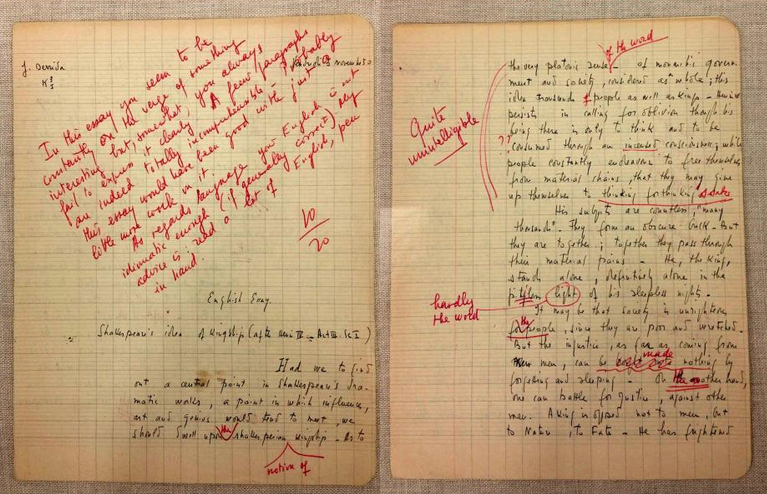 J. Derrida
K I
In this essay you seem to be
constantly on the verge of something
interesting but, somewhat, you always
fail to explain it clearly. A few paragraphs
are indeed totally incomprehensible - Probably
this essay would have been good with just a
little more work in it.
As regards language your English is not
idiomatic enough (if generally correct). My
advice is: read a lot of English, pen
in hand.
10
20
English Essay
Shakespeare's idea of Kingship (after Henri IV - Act III. Sc I)
Had we to find
out a central point in Shakespeare's dra-
matic works, a point in which influences,
art and genius would tend to meet, we
should dwell upon the shakesperian kingship. As to
notion of
of the word
the very platonic sense - of monarchic govern
ment and society, considered as whole; this
idea transcends people as well as Kings - Henri
persists in calling for oblivion though his
being there is only to think and to be
consumed through an incented consciousness; while
people constantly endeavour to free themselves
from material chains, that they may give
up themselves to thinking for thinking sake
Quite
unintelligible
?!
His subjects are countless; "many
thousands". They form an obscure bulk. But
they are together; together they pass through
their material pains - He, the King,
stands alone, definitively alone in the
light of his sleepless nights.
hardly
the word
It may be that society is unrighteous
for the people, since they are poor and wretched.
But the injustice, as far as coming from
men, can be made nothing by
forgetting and sleeping - On the other hand,
one can battle for justice, against other
men. A King is opposed not to men, but
to Nature, to Fate - He has frightened